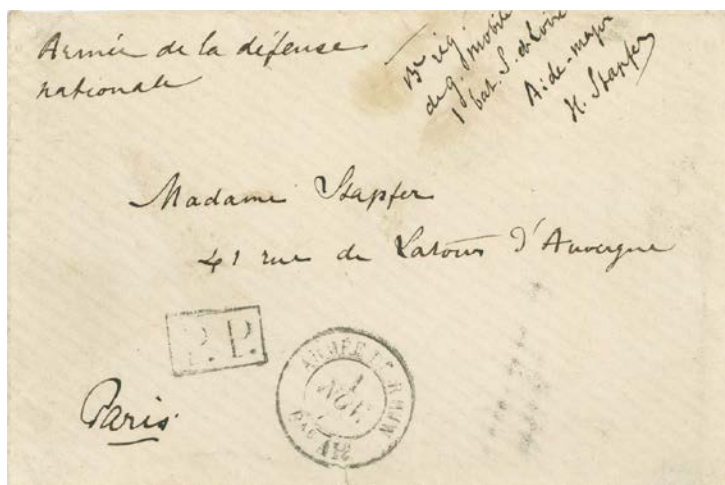 Armée de la défense
nationale
13e rég
de g. mobile
1 bat. S. et Loire
Aide-major
H. Stapfer
Madame Stapfer
41 rue de Latour d'Auvergne
P.P.
ARMÉE DU RHIN
1
NOV.
Paris